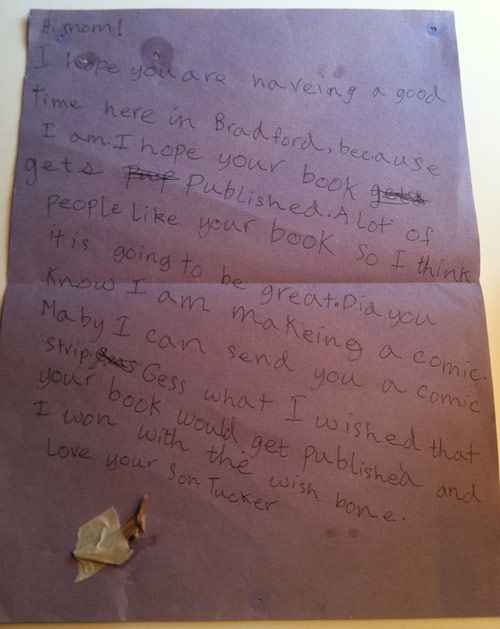 Hi mom!
I hope you are naveing a good
time here in Bradford, because
I am. I hope your book gets
gets Published. A Lot of
people Like your book so I think
it is going to be great. Did you
Know I am makeing a comic.
Maby I can send you a comic
strip. Gess what I wished that
your book would get published and
I won with the wish bone.
Love your son Tucker